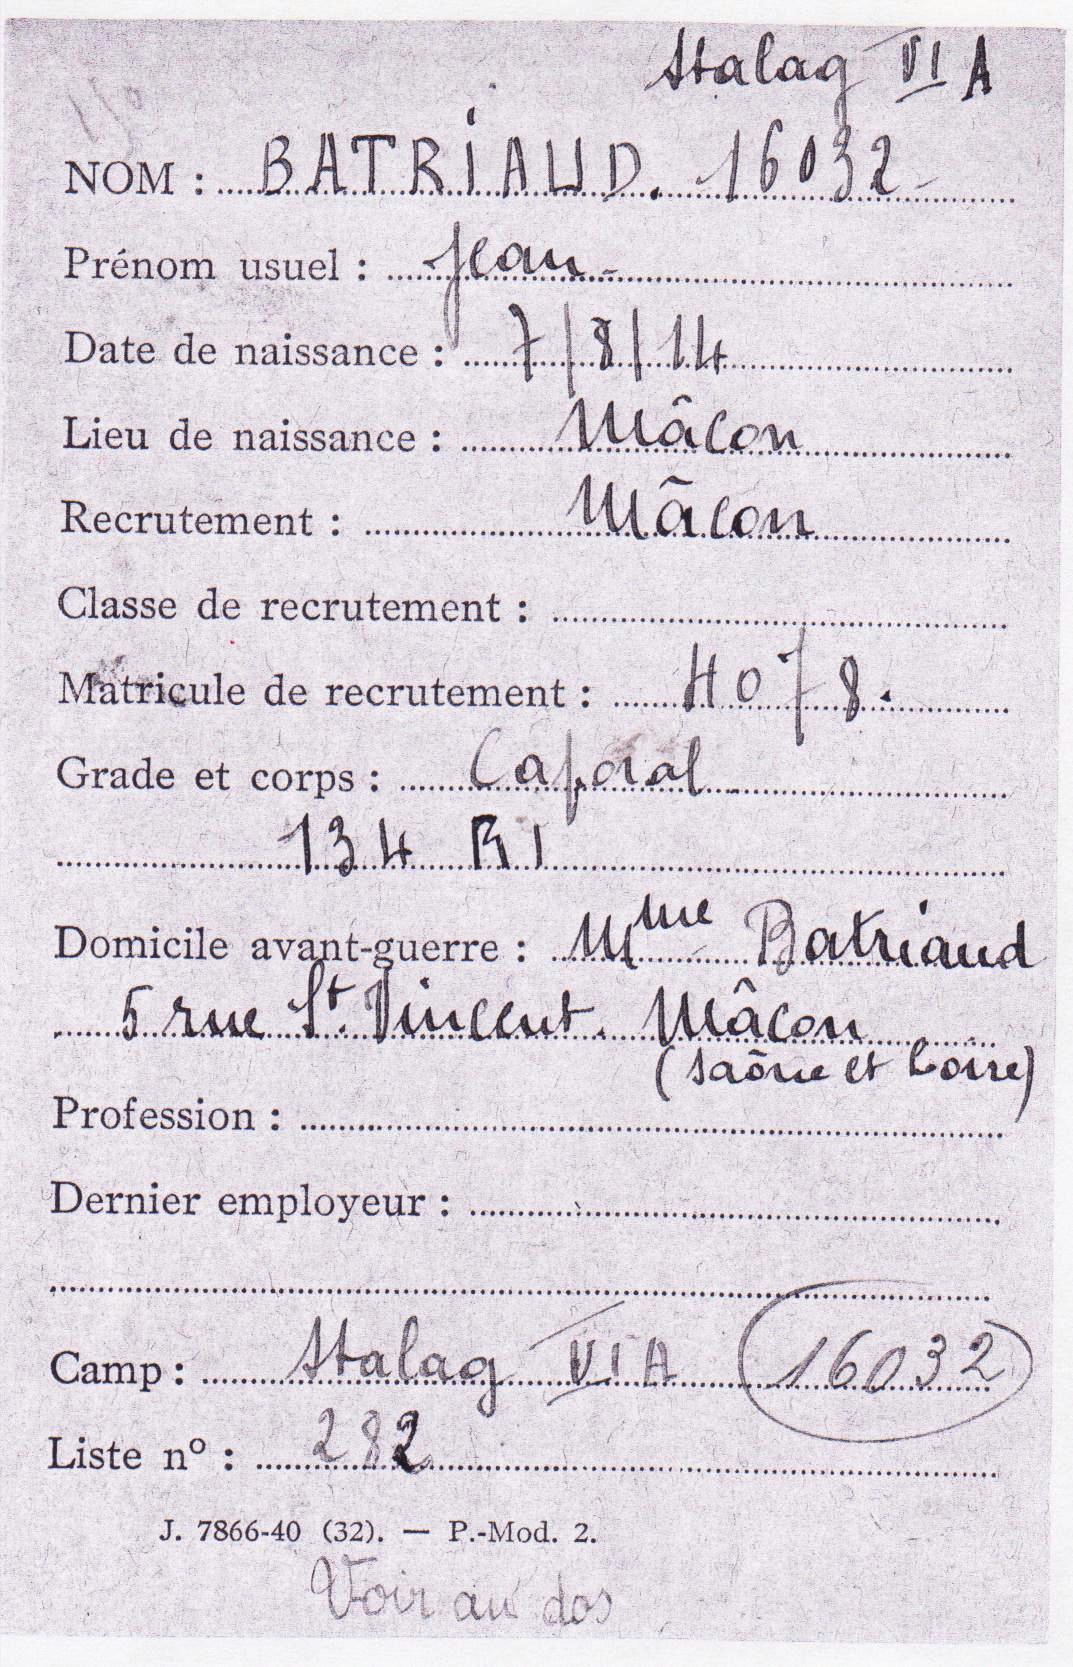 Stalag VI A
NOM : BATRIAUD. 16032
Prénom usuel : Jean
Date de naissance : 7/8/14
Lieu de naissance : Mâcon
Recrutement : Mâcon
Classe de recrutement :
Matricule de recrutement : 4078.
Grade et corps : Caporal
134 RI
Domicile avant-guerre : Mme Batriaud
5 rue St. Vincent. Mâcon
(Saône et Loire)
Profession :
Dernier employeur :
Camp : Stalag VI A 16032
Liste nº : 282
J. 7866-40 (32). — P.-Mod. 2.
Voir au dos